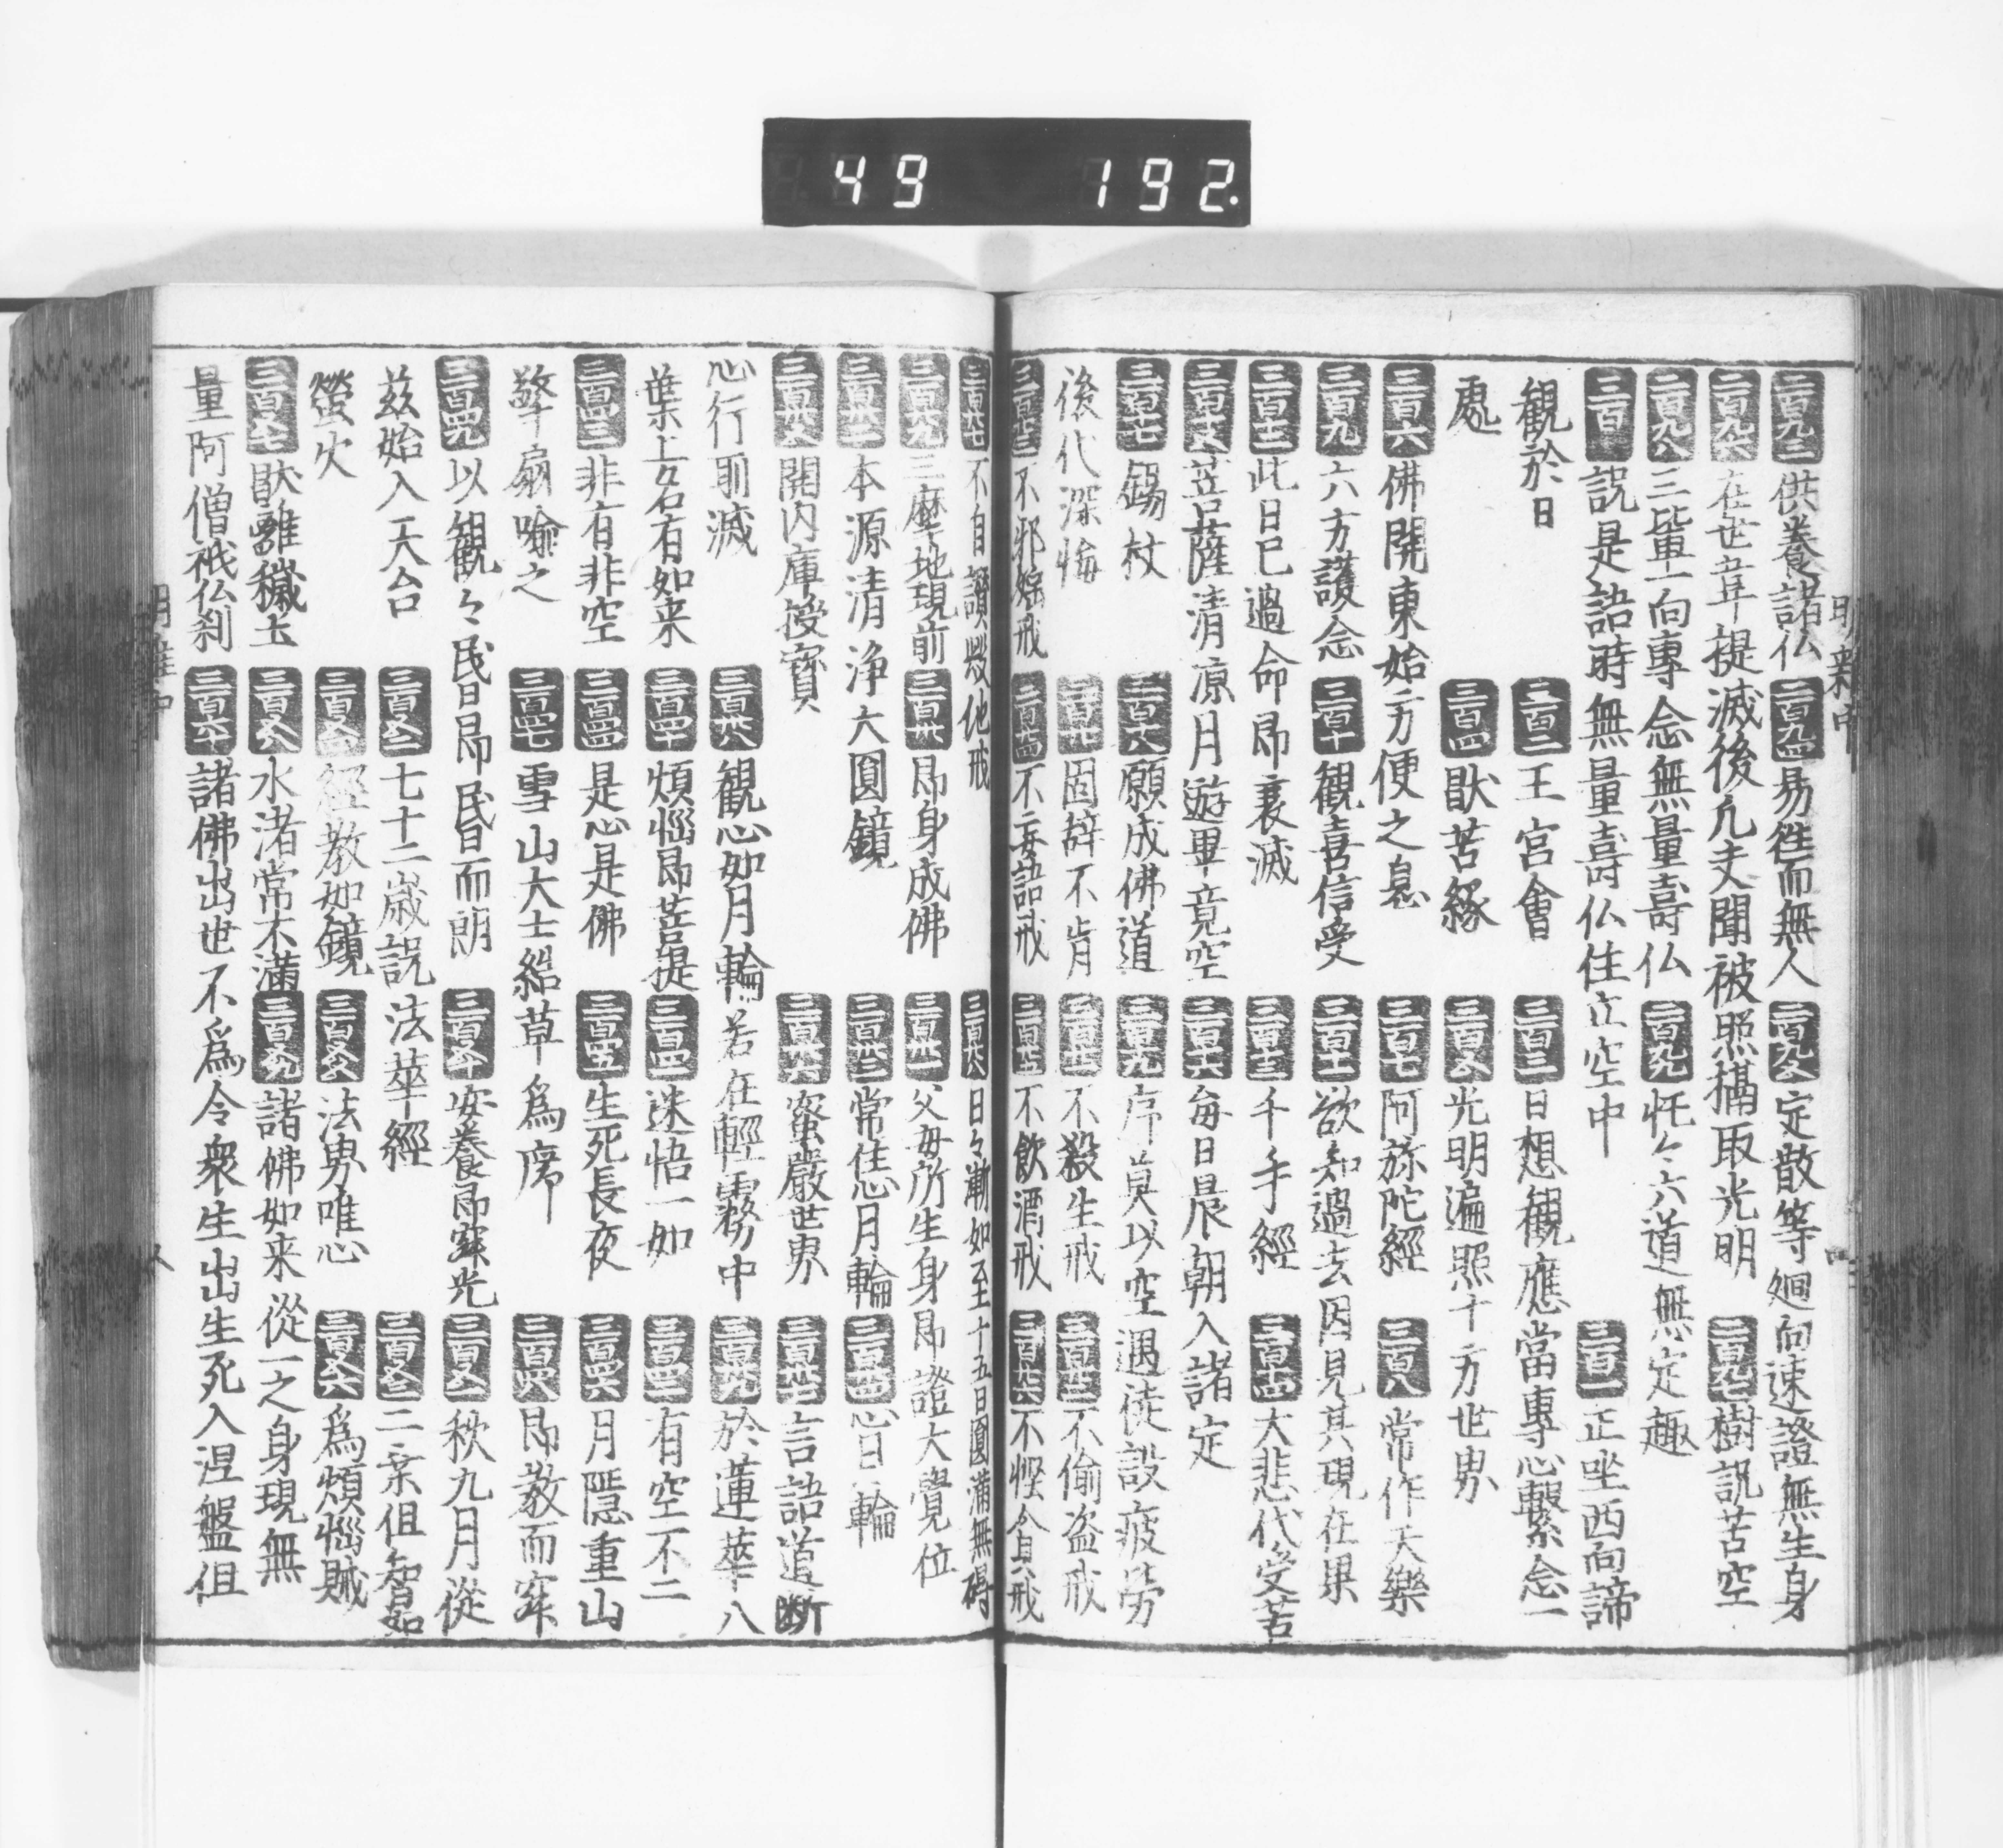 49 192.
二百九三 供養諸仏 二百九四 易往而無人 二百九五 定散等廻向速證無生身
二百九六 在世韋提滅後凡夫聞被照攝取光明 二百九七 樹説苦空
二百九八 三輩一向專念無量壽仏 二百九九 忙々六道無定趣
三百 説是語時無量壽仏住立空中 三百一 正坐西向諦
觀於日 三百二 王宮會 三百三 日想觀應當專心繫念一
處 三百四 猒苦緣 三百五 光明遍照十方世界
三百六 佛開東始方便之息 三百七 阿弥陀經 三百八 常作天樂
三百九 六方護念 三百十 觀喜信受 三百十一 欲知過去因見其現在果
三百十二 此日已過命即衰滅 三百十三 千手經 三百十四 大悲代受苦
三百十五 菩薩清凉月遊畢竟空 三百十六 每日晨朝入諸定
三百十七 錫杖 三百十八 願成佛道 三百十九 序莫以空過徒設疲勞
後代深悔 三百二十 固辞不肯 三百廿一 不殺生戒 三百廿二 不偷盗戒
三百廿三 不邪婬戒 三百廿四 不妄語戒 三百廿五 不飲酒戒 三百廿六 不慳貪戒
三百廿七 不自讃毀他戒 三百廿八 日々漸如至十五日圓滿無碍
三百廿九 三摩地現前 三百卅 即身成佛 三百卅一 父母所生身即證大覺位
三百卅二 本源清淨大圓鏡 三百卅三 常住心月輪 三百卅四 心日輪
三百卅五 開内庫授寳 三百卅六 蜜嚴世界 三百卅七 言語道断
心行則滅 三百卅八 觀心如月輪若在輕霧中 三百卅九 於蓮華八
葉上名有如来 三百四十 煩惱即菩提 三百四一 迷悟一如 三百四二 有空不二
三百四三 非有非空 三百四四 是心是佛 三百四五 生死長夜 三百四六 月隱重山
擎扇喻之 三百四七 雪山大士結草為席 三百四八 即教而寂
三百四九 以觀々昬即昬而朗 三百五十 安養即寂光 三百五一 秋九月從
玆始入天台 三百五二 七十二歲説法華經 三百五三 二乗但智如
螢火 三百五四 經教如鏡 三百五五 法界唯心 三百五六 為煩惱賊
三百五七 猒離穢土 三百五八 水渚常不滿 三百五九 諸佛如来從一之身現無
量阿僧祇仏刹 三百六十 諸佛出世不為令衆生出生死入涅盤但